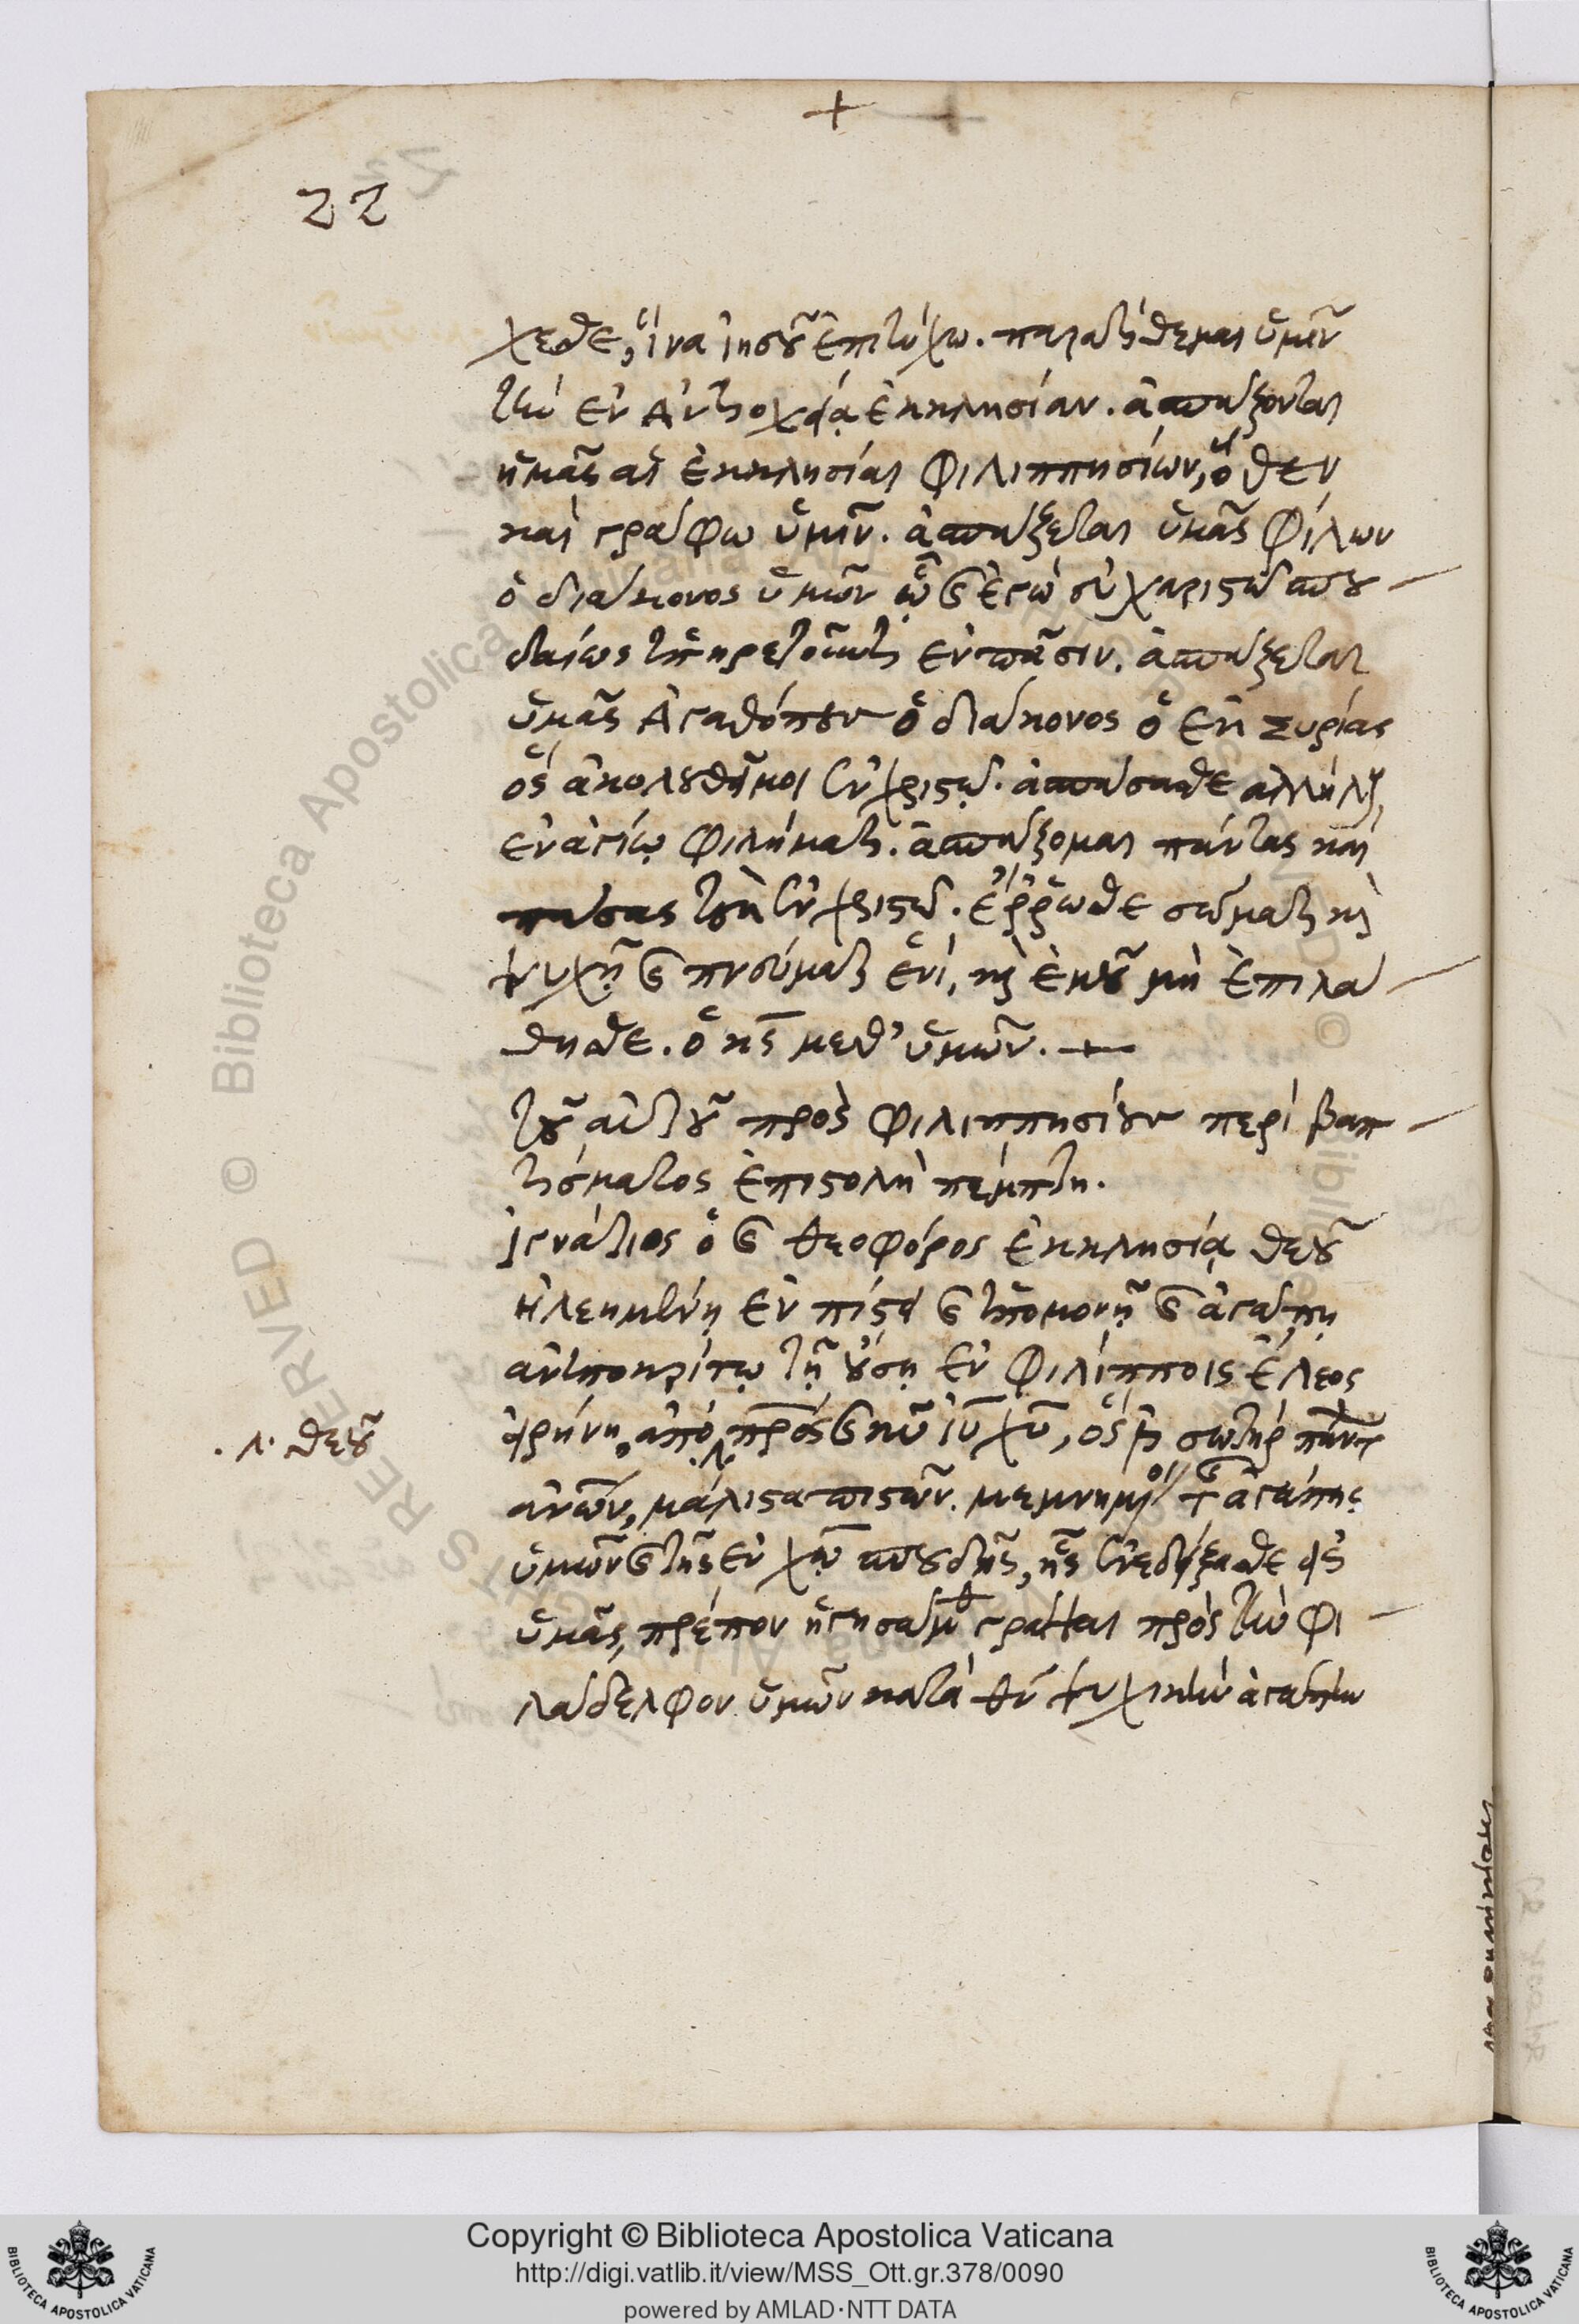 +
22
χεσθε, ἵνα ἰησοῦ ἐπιτύχω. παρατίθεμαι ὑμῖν
τὴν ἐν Ἀντιοχείᾳ ἐκκλησίαν. ἀσπάζονται
ὑμᾶς αἱ ἐκκλησίαι Φιλιππησίων, ὅθεν
καὶ γράφω ὑμῖν. ἀσπάζεται ὑμᾶς Φίλων
ὁ διάκονος ὑμῶν ᾧ καὶ ἐγὼ εὐχαριστῶ σπου
δαίως ὑπηρετοῦντι ἐν πᾶσιν. ἀσπάζεται
ὑμᾶς Ἀγαθόπους ὁ διάκονος ὁ ἐκ Συρίας
ὃς ἀκολουθεῖ μοι ἐν χριστῷ. ἀσπάσασθε ἀλλήλους
ἐν ἁγίῳ φιλήματι. ἀσπάζομαι πάντας καὶ
πάσας τοὺς ἐν χριστῷ. ἔρρωσθε σώματι καὶ
ψυχῇ καὶ πνεύματι ἑνί, καὶ ἐμοῦ μὴ ἐπιλά
θησθε. ὁ κς μεθ' ὑμῶν.
τοῦ αὐτοῦ πρὸς Φιλιππησίους περὶ βαπ
τίσματος ἐπιστολὴ πέμπτη.
Ἰγνάτιος ὁ καὶ θεοφόρος ἐκκλησίᾳ θεοῦ
ἠλεημένῃ ἐν πίστει καὶ ὑπομονῇ καὶ ἀγάπῃ
ἀνυποκρίτῳ τῇ οὔσῃ ἐν Φιλίπποις ἔλεος
εἰρήνη ἀπὸ πρὸς καὶ κυ ιυ χυ, ὅς ἐστι σωτὴρ πάντων
.λ. θεοῦ
ανων, μάλιστα πιστῶν. μεμνημένοι τῆς ἀγάπης
ὑμῶν καὶ τῆς ἐν χω σπουδῆς, ἧς ἐνεδείξασθε εἰς
ὑμᾶς, πρέπον ἡγησάμεθα γράψαι πρὸς τὴν φι
λάδελφον ὑμῶν κατὰ θν ψυχικὴν ἀγάπην
Copyright © Biblioteca Apostolica Vaticana
http://digi.vatlib.it/view/MSS_Ott.gr.378/0090
powered by AMLAD·NTT DATA